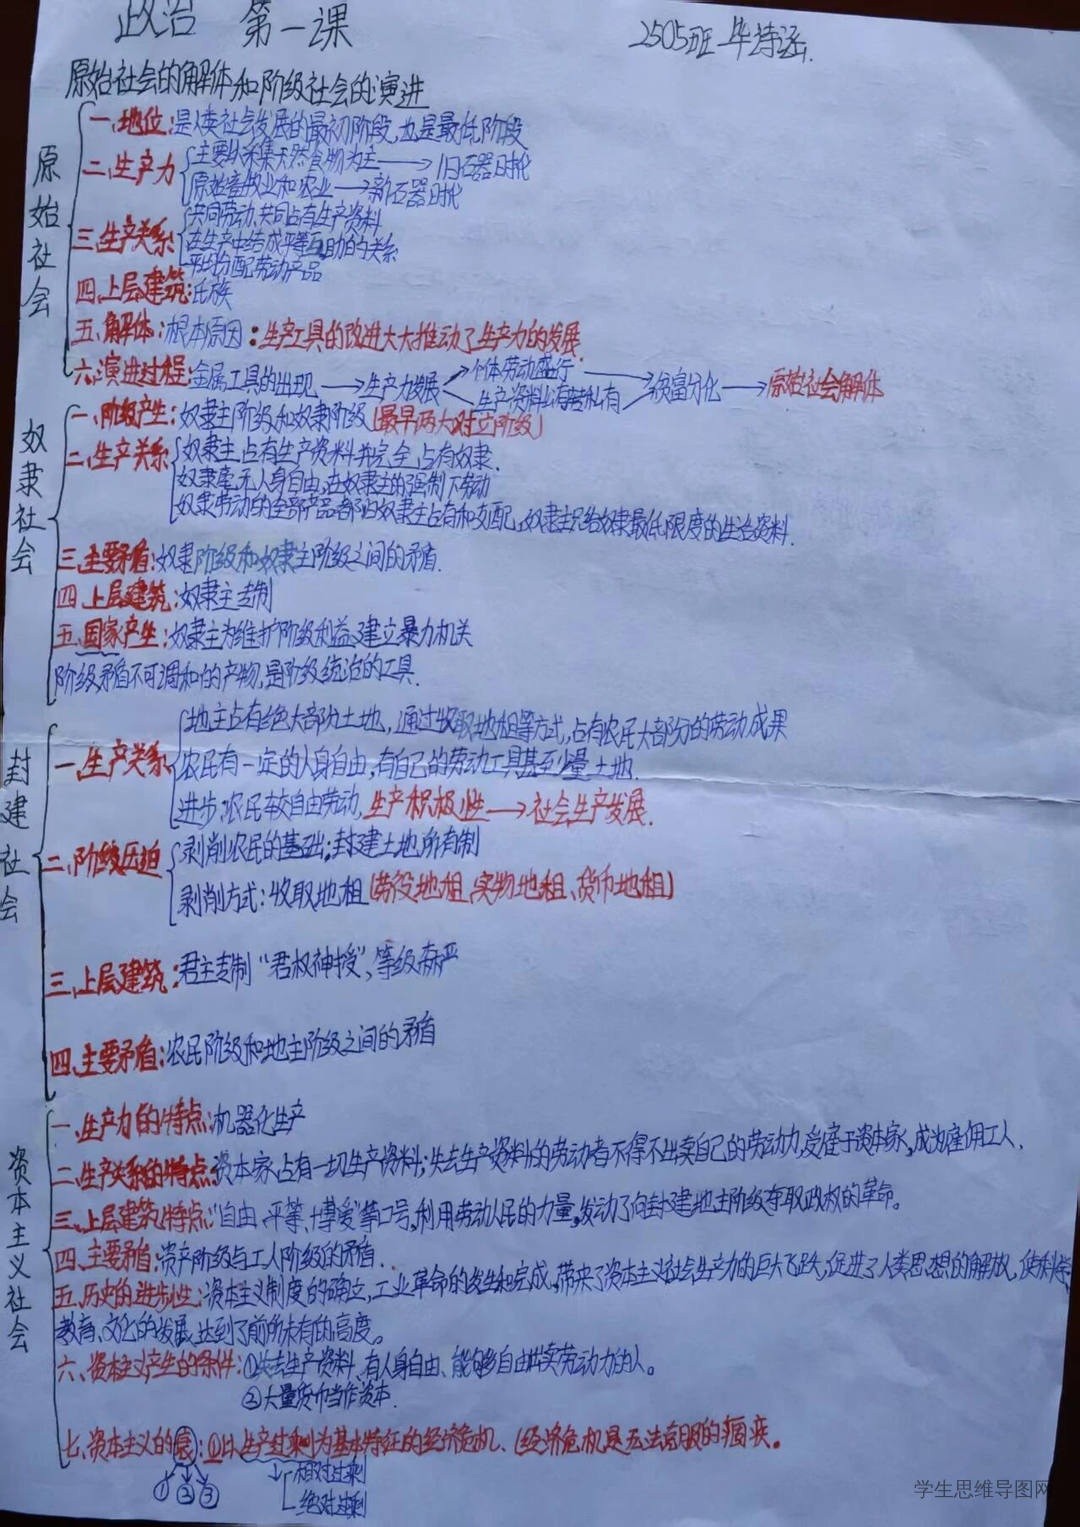 政治 第一课
2505班 毕诗涵.
原始社会的解体和阶级社会的演进
原始社会
一、地位:是人类社会发展的最初阶段,也是最低阶段
二、生产力
主要以采集天然食物为主→旧石器时代
原始畜牧业和农业→新石器时代
三、生产关系
共同劳动、共同占有生产资料
在生产中结成平等互助的关系
平均分配劳动产品
四、上层建筑:氏族
五、解体:根本原因:生产工具的改进大大推动了生产力的发展.
六、演进过程:金属工具的出现→生产力发展
个体劳动盛行
生产资料公有转私有
→贫富分化→原始社会解体
奴隶社会
一、阶级产生:奴隶主阶级和奴隶阶级(最早两大对立阶级)
二、生产关系
奴隶主占有生产资料并完全占有奴隶.
奴隶毫无人身自由,在奴隶主的强制下劳动
奴隶劳动的全部产品都归奴隶主占有和支配,奴隶主只给奴隶最低限度的生活资料.
三、主要矛盾:奴隶阶级和奴隶主阶级之间的矛盾.
四、上层建筑:奴隶主专制
五、国家产生:奴隶主为维护阶级利益,建立暴力机关
阶级矛盾不可调和的产物,是阶级统治的工具.
封建社会
一、生产关系
地主占有绝大部分土地,通过收取地租等方式,占有农民大部分的劳动成果
农民有一定的人身自由,有自己的劳动工具甚至少量土地.
进步:农民较自由劳动,生产积极性→社会生产发展.
二、阶级压迫
剥削农民的基础:封建土地所有制
剥削方式:收取地租(劳役地租、实物地租、货币地租)
三、上层建筑:君主专制“君权神授”,等级森严
四、主要矛盾:农民阶级和地主阶级之间的矛盾
资本主义社会
一、生产力的特点:机器化生产
二、生产关系的特点:资本家占有一切生产资料;失去生产资料的劳动者不得不出卖自己的劳动力,受雇于资本家,成为雇佣工人.
三、上层建筑特点:“自由、平等、博爱”等口号,利用劳动人民的力量,发动了向封建地主阶级夺取政权的革命。
四、主要矛盾:资产阶级与工人阶级的矛盾.
五、历史的进步性:资本主义制度的确立,工业革命的发生和完成,带来了资本主义社会生产力的巨大飞跃,促进了人类思想的解放,使科学、
教育、文化的发展达到了前所未有的高度。
六、资本主义产生的条件:①失去生产资料、有人身自由、能够自由出卖劳动力的人。
②大量货币当作资本.
七、资本主义的衰:①以生产过剩为基本特征的经济危机、(经济危机是无法克服的痼疾。
① ② ③
相对过剩
绝对过剩
学生思维导图网